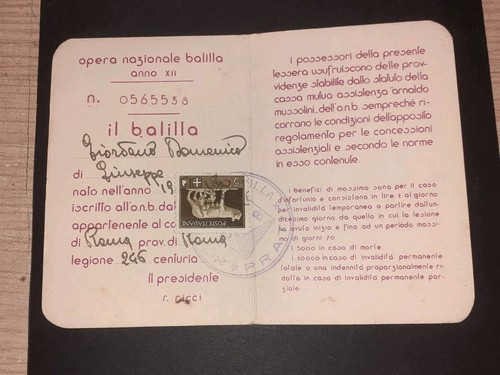 opera nazionale balilla
anno XII
n. 0565538
il balilla
Giordano Domenico
di Giuseppe
nato nell'anno 19
iscritto all'o.n.b. da
appartenente al co
di Roma prov. di Roma
legione 246 centuria
Il presidente
r. ricci
POSTE ITALIANE
i possessori della presente
tessera usufruiscono delle prov-
videnze stabilite dallo statuto della
cassa mutua assistenza arnaldo
mussolini, dell'o.n.b. sempreché ri-
corrano le condizioni dell'apposito
regolamento per le concessioni
assistenziali e secondo le norme
in esso contenute.
i benefici di massima sono per il caso
d'infortunio e consistono in lire 2 al giorno
per invalidità temporanea a partire dall'un-
dicesimo giorno da quello in cui la lesione
ha avuto inizio e fino ad un periodo massi-
mo di giorni 70.
l. 5000 in caso di morte.
l. 10000 in caso di invalidità permanente
totale o una indennità proporzionalmente ri-
dotta in caso di invalidità permanente par-
ziale.